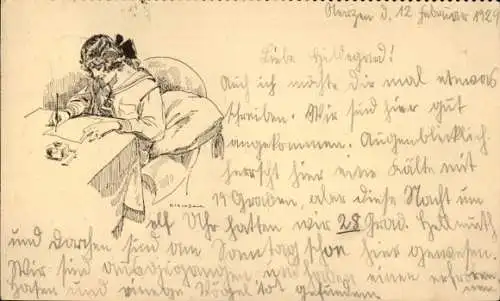 Sterzen d. 12 Februar 1929
Liebe Hildegard!
Auch ich möchte Dir mal etwas
schreiben. Wir sind hier gut
angekommen. Augenblicklich
herrscht hier eine Kälte mit
19 Graden, aber diese Nacht um
elf Uhr hatten wir 28 Grad. Hellmuth
und Dorchen sind am Sonntag schon hier gewesen.
Wir sind ausgegangen und haben einen erfrore-
nen
Hasen und einige Vögel tot gefunden